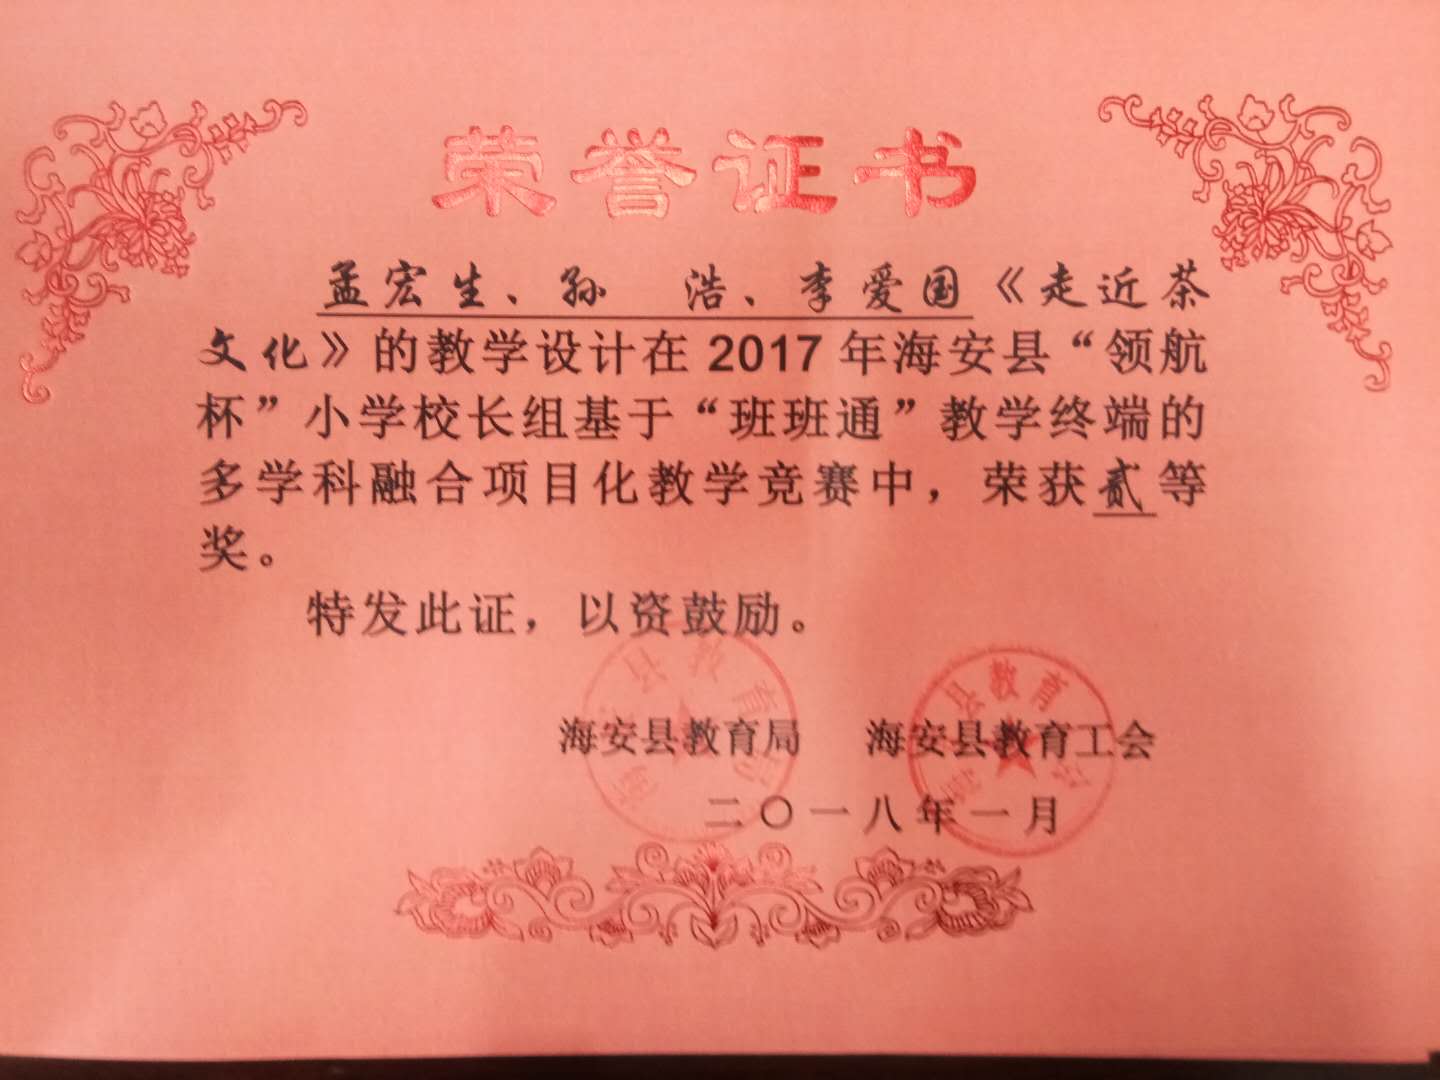 荣誉证书
孟宏生、孙　浩、李爱国《走近茶
文化》的教学设计在 2017 年海安县“领航
杯”小学校长组基于“班班通”教学终端的
多学科融合项目化教学竞赛中，荣获贰等
奖。
特发此证，以资鼓励。
海安县教育局　海安县教育工会
二〇一八年一月